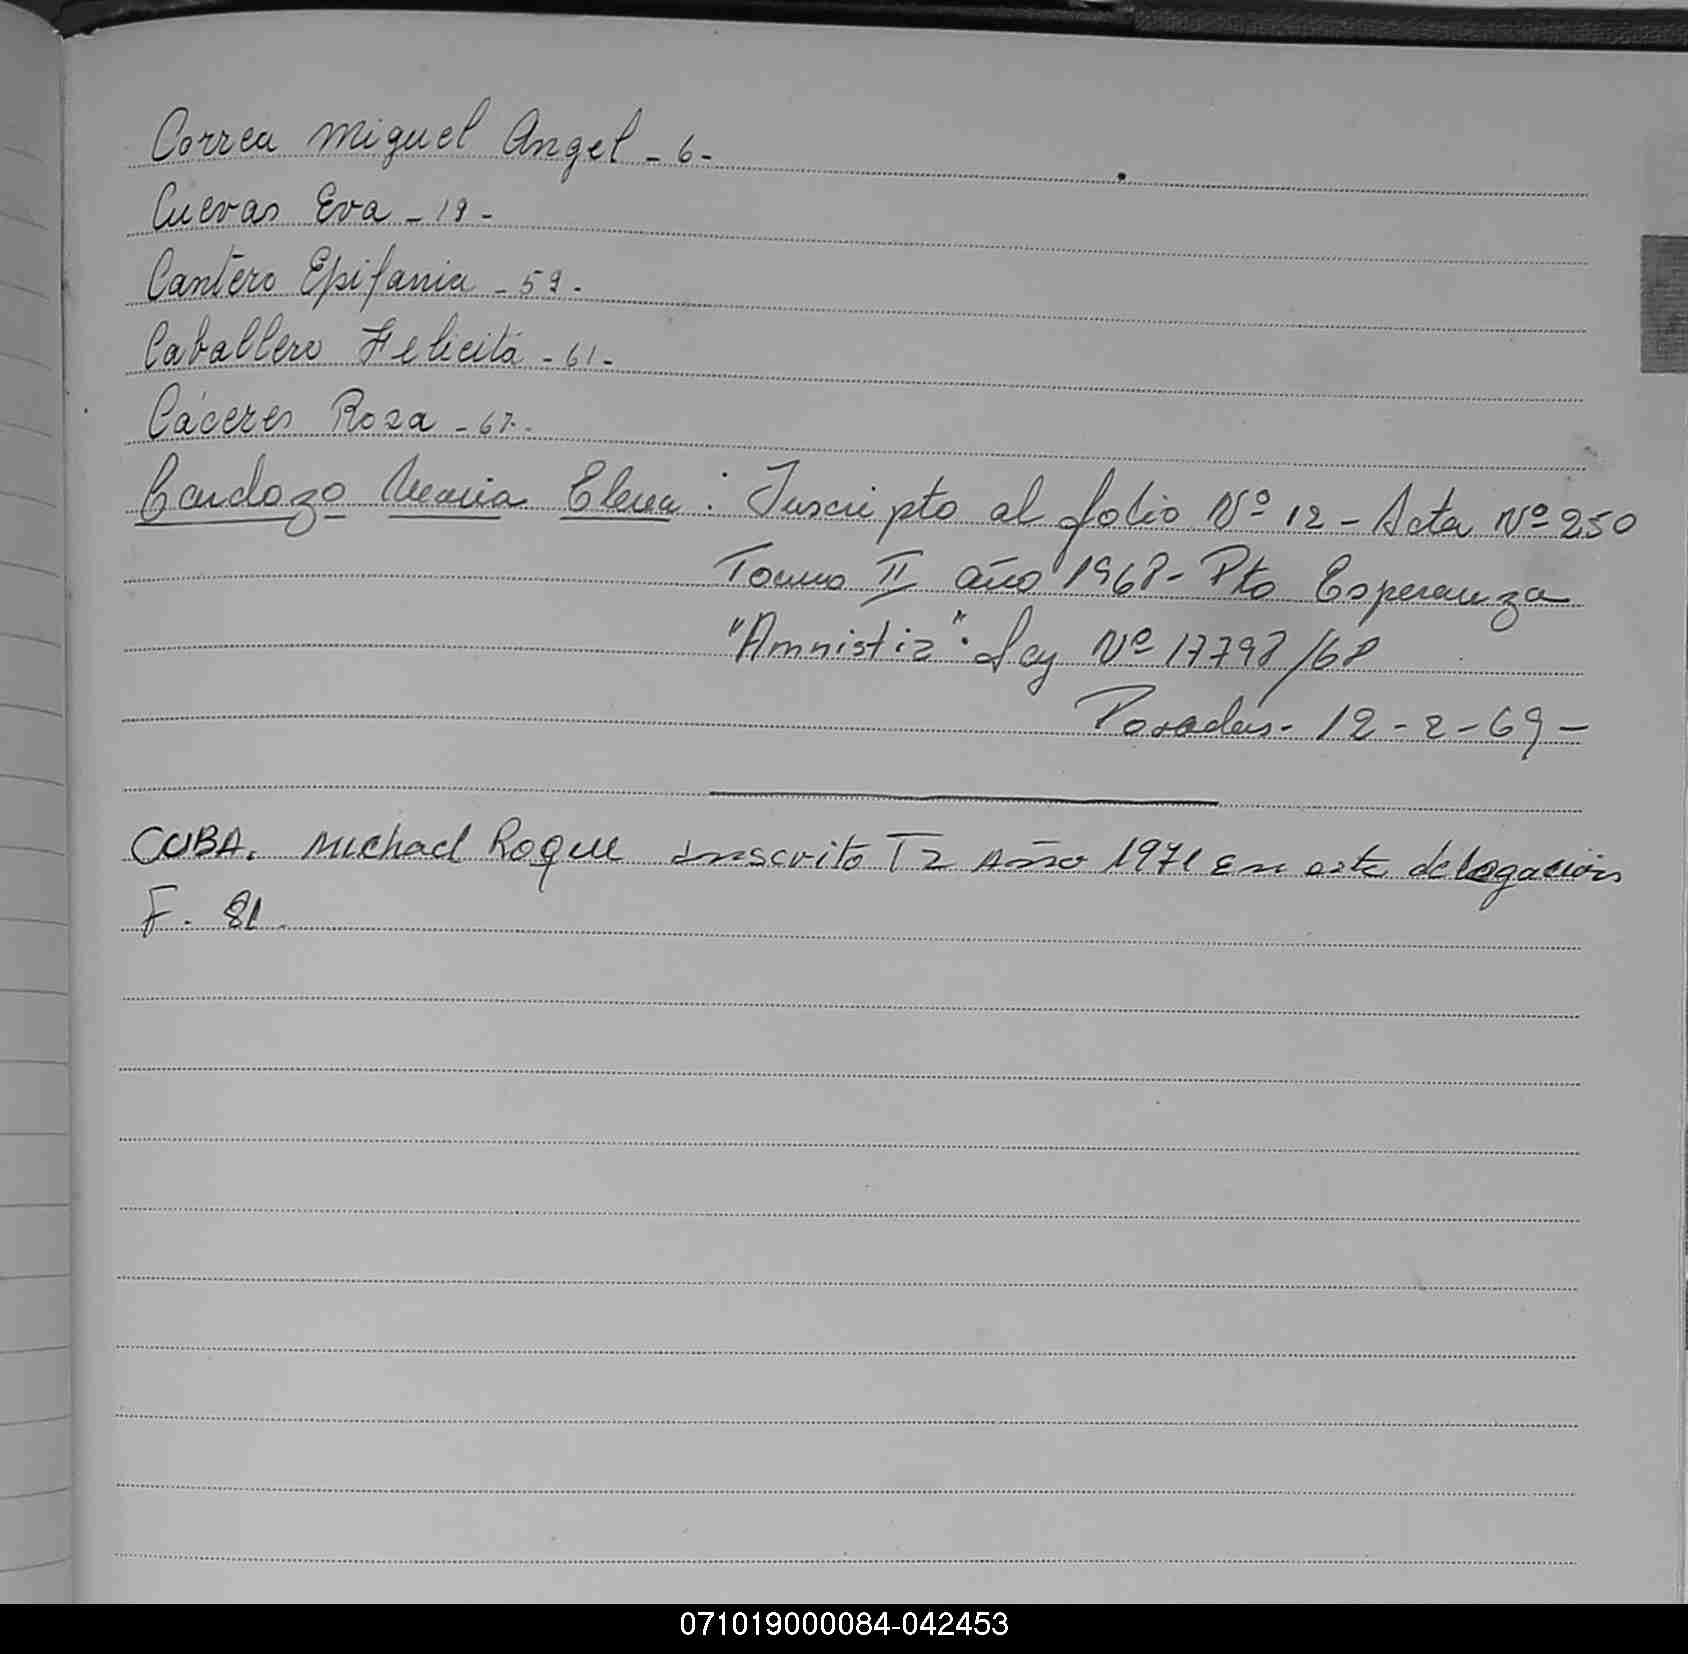 Correa Miguel Angel - 6 -
Cuevas Eva - 19 -
Cantero Epifania - 59 -
Caballero Felicita - 61 -
Cáceres Rosa - 67 -
Cardozo Maria Elena : Inscripto al folio Nº 12 - Acta Nº 250
Tomo II año 1968 - Pto Esperanza
"Amnistia". Ley Nº 17798/68
Posadas - 12 - 2 - 69 -
CUBA. Michael Roque inscrito T2 Año 1971 En este delegación
F. 81.
071019000084-042453